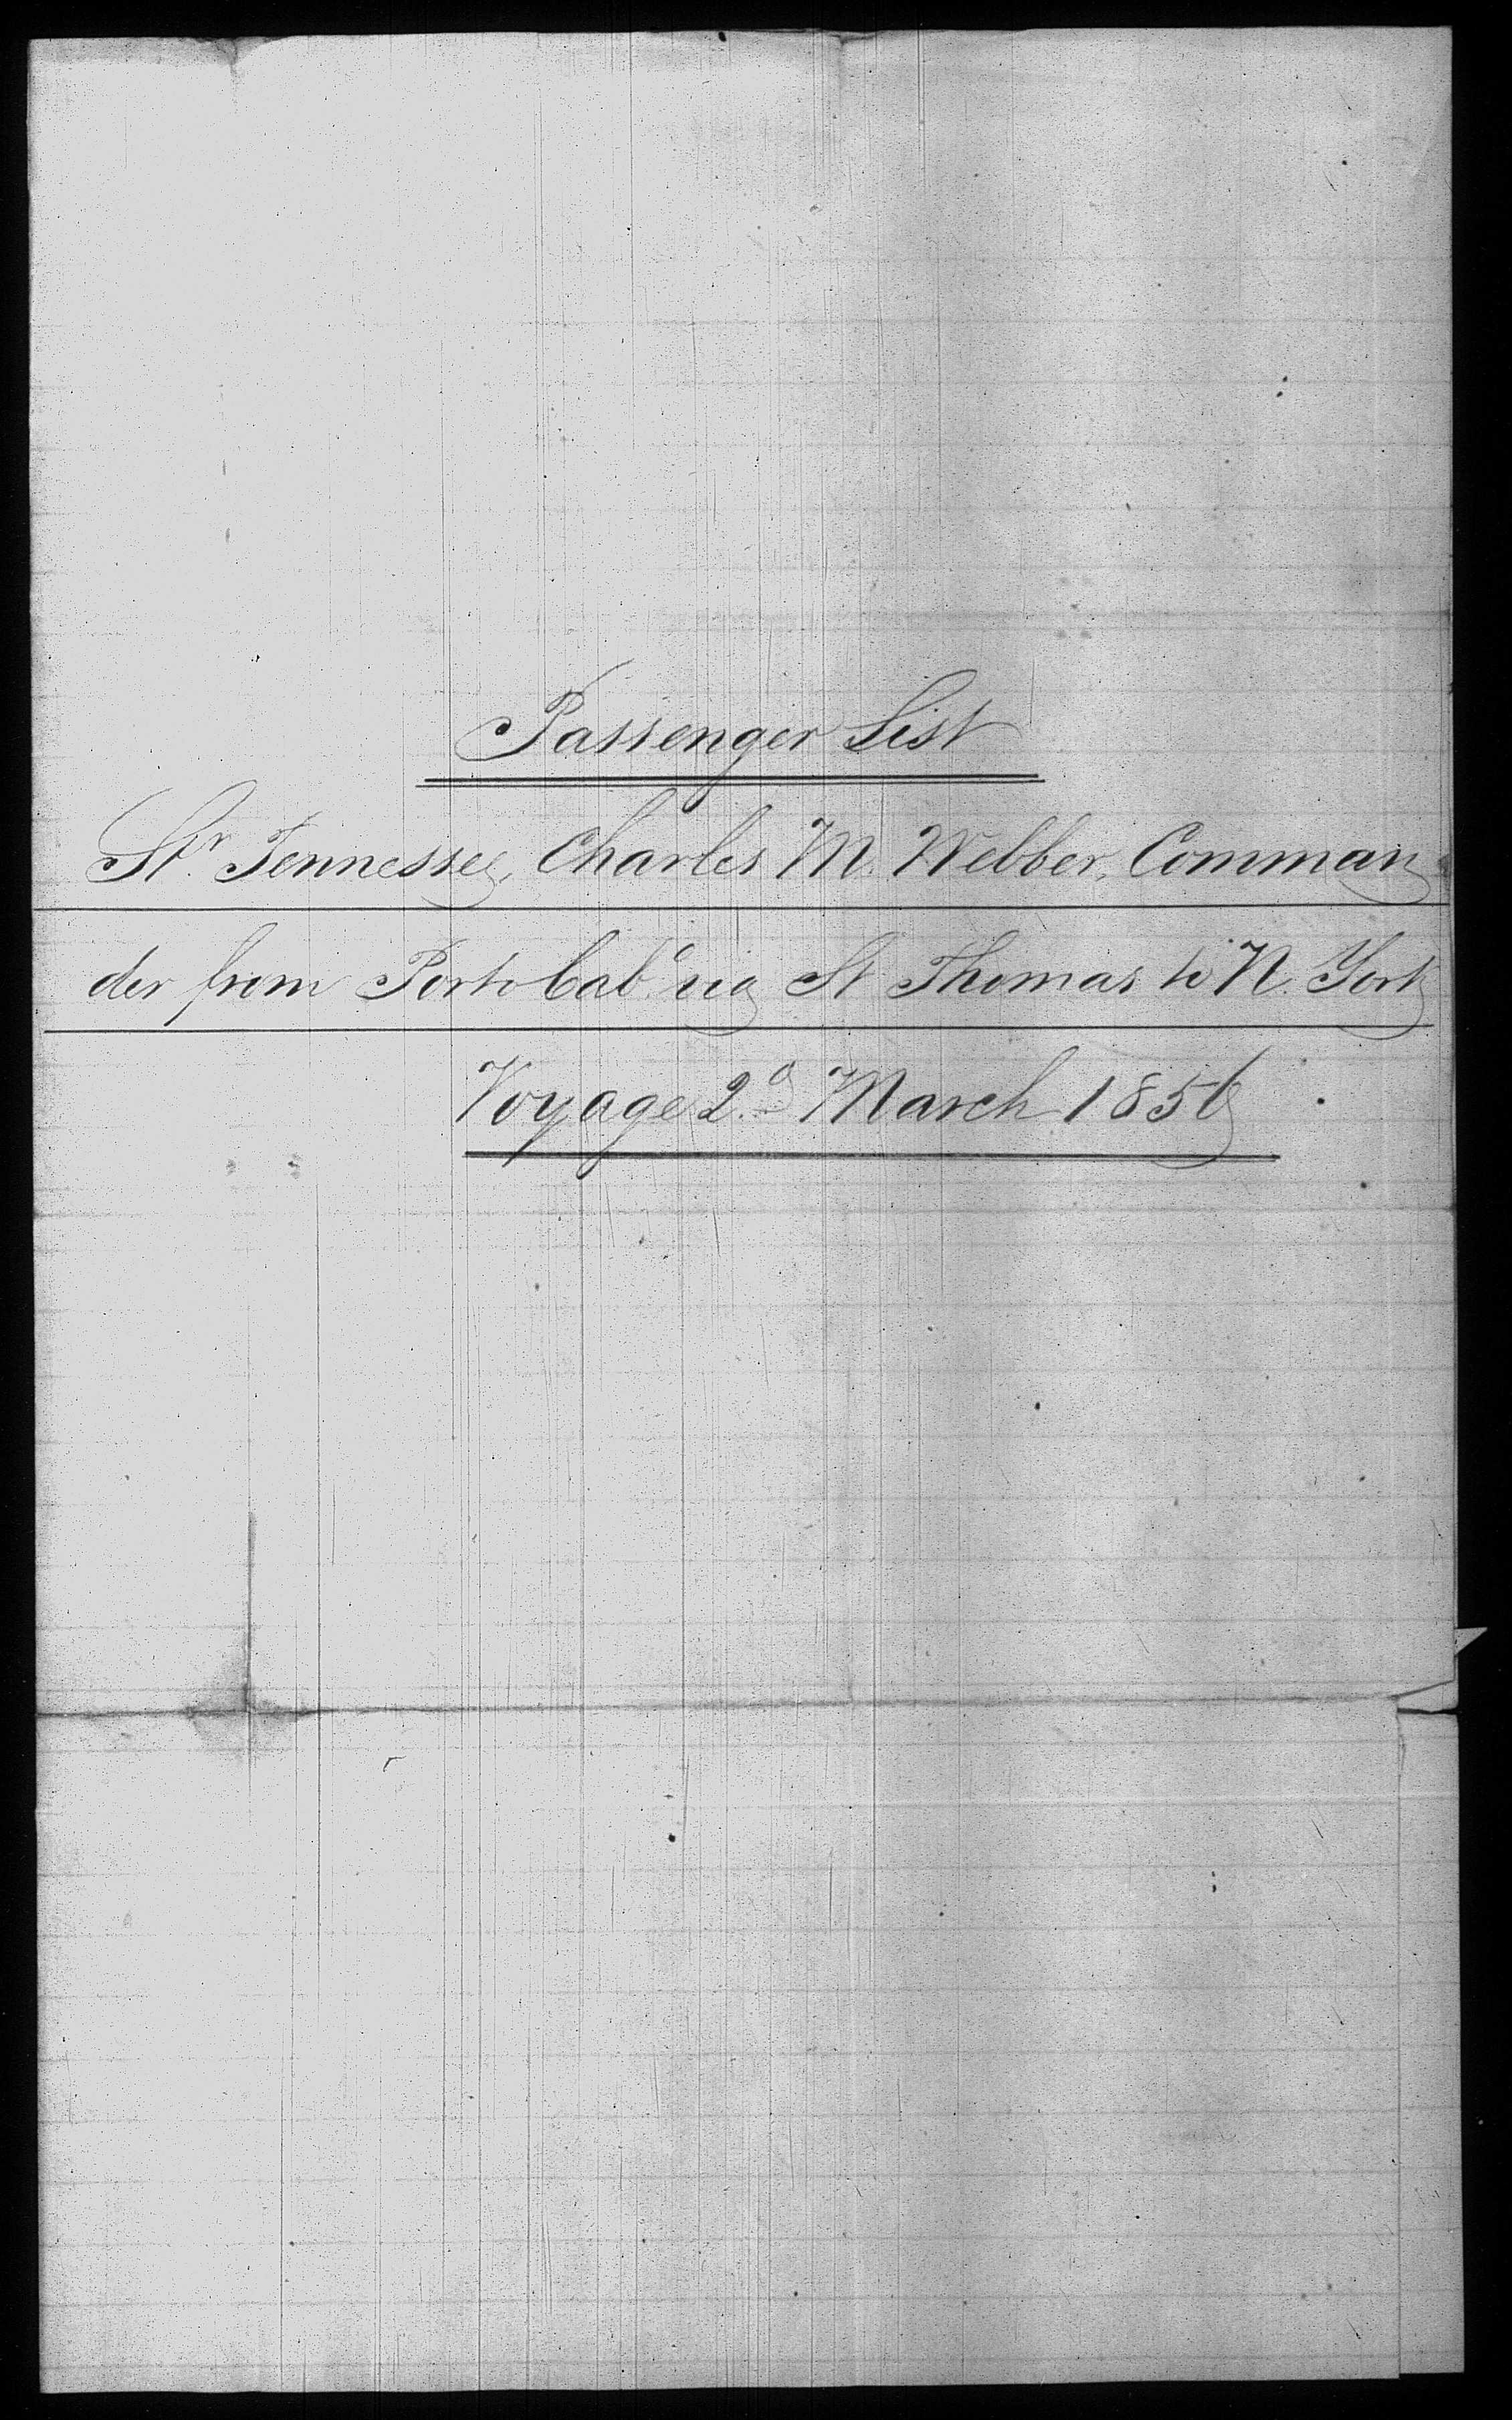 Passenger List
Str. Tennessee, Charles M. Webber, Comman
der from Porto Cabo via St Thomas to N. York
Voyage 2d March 1856